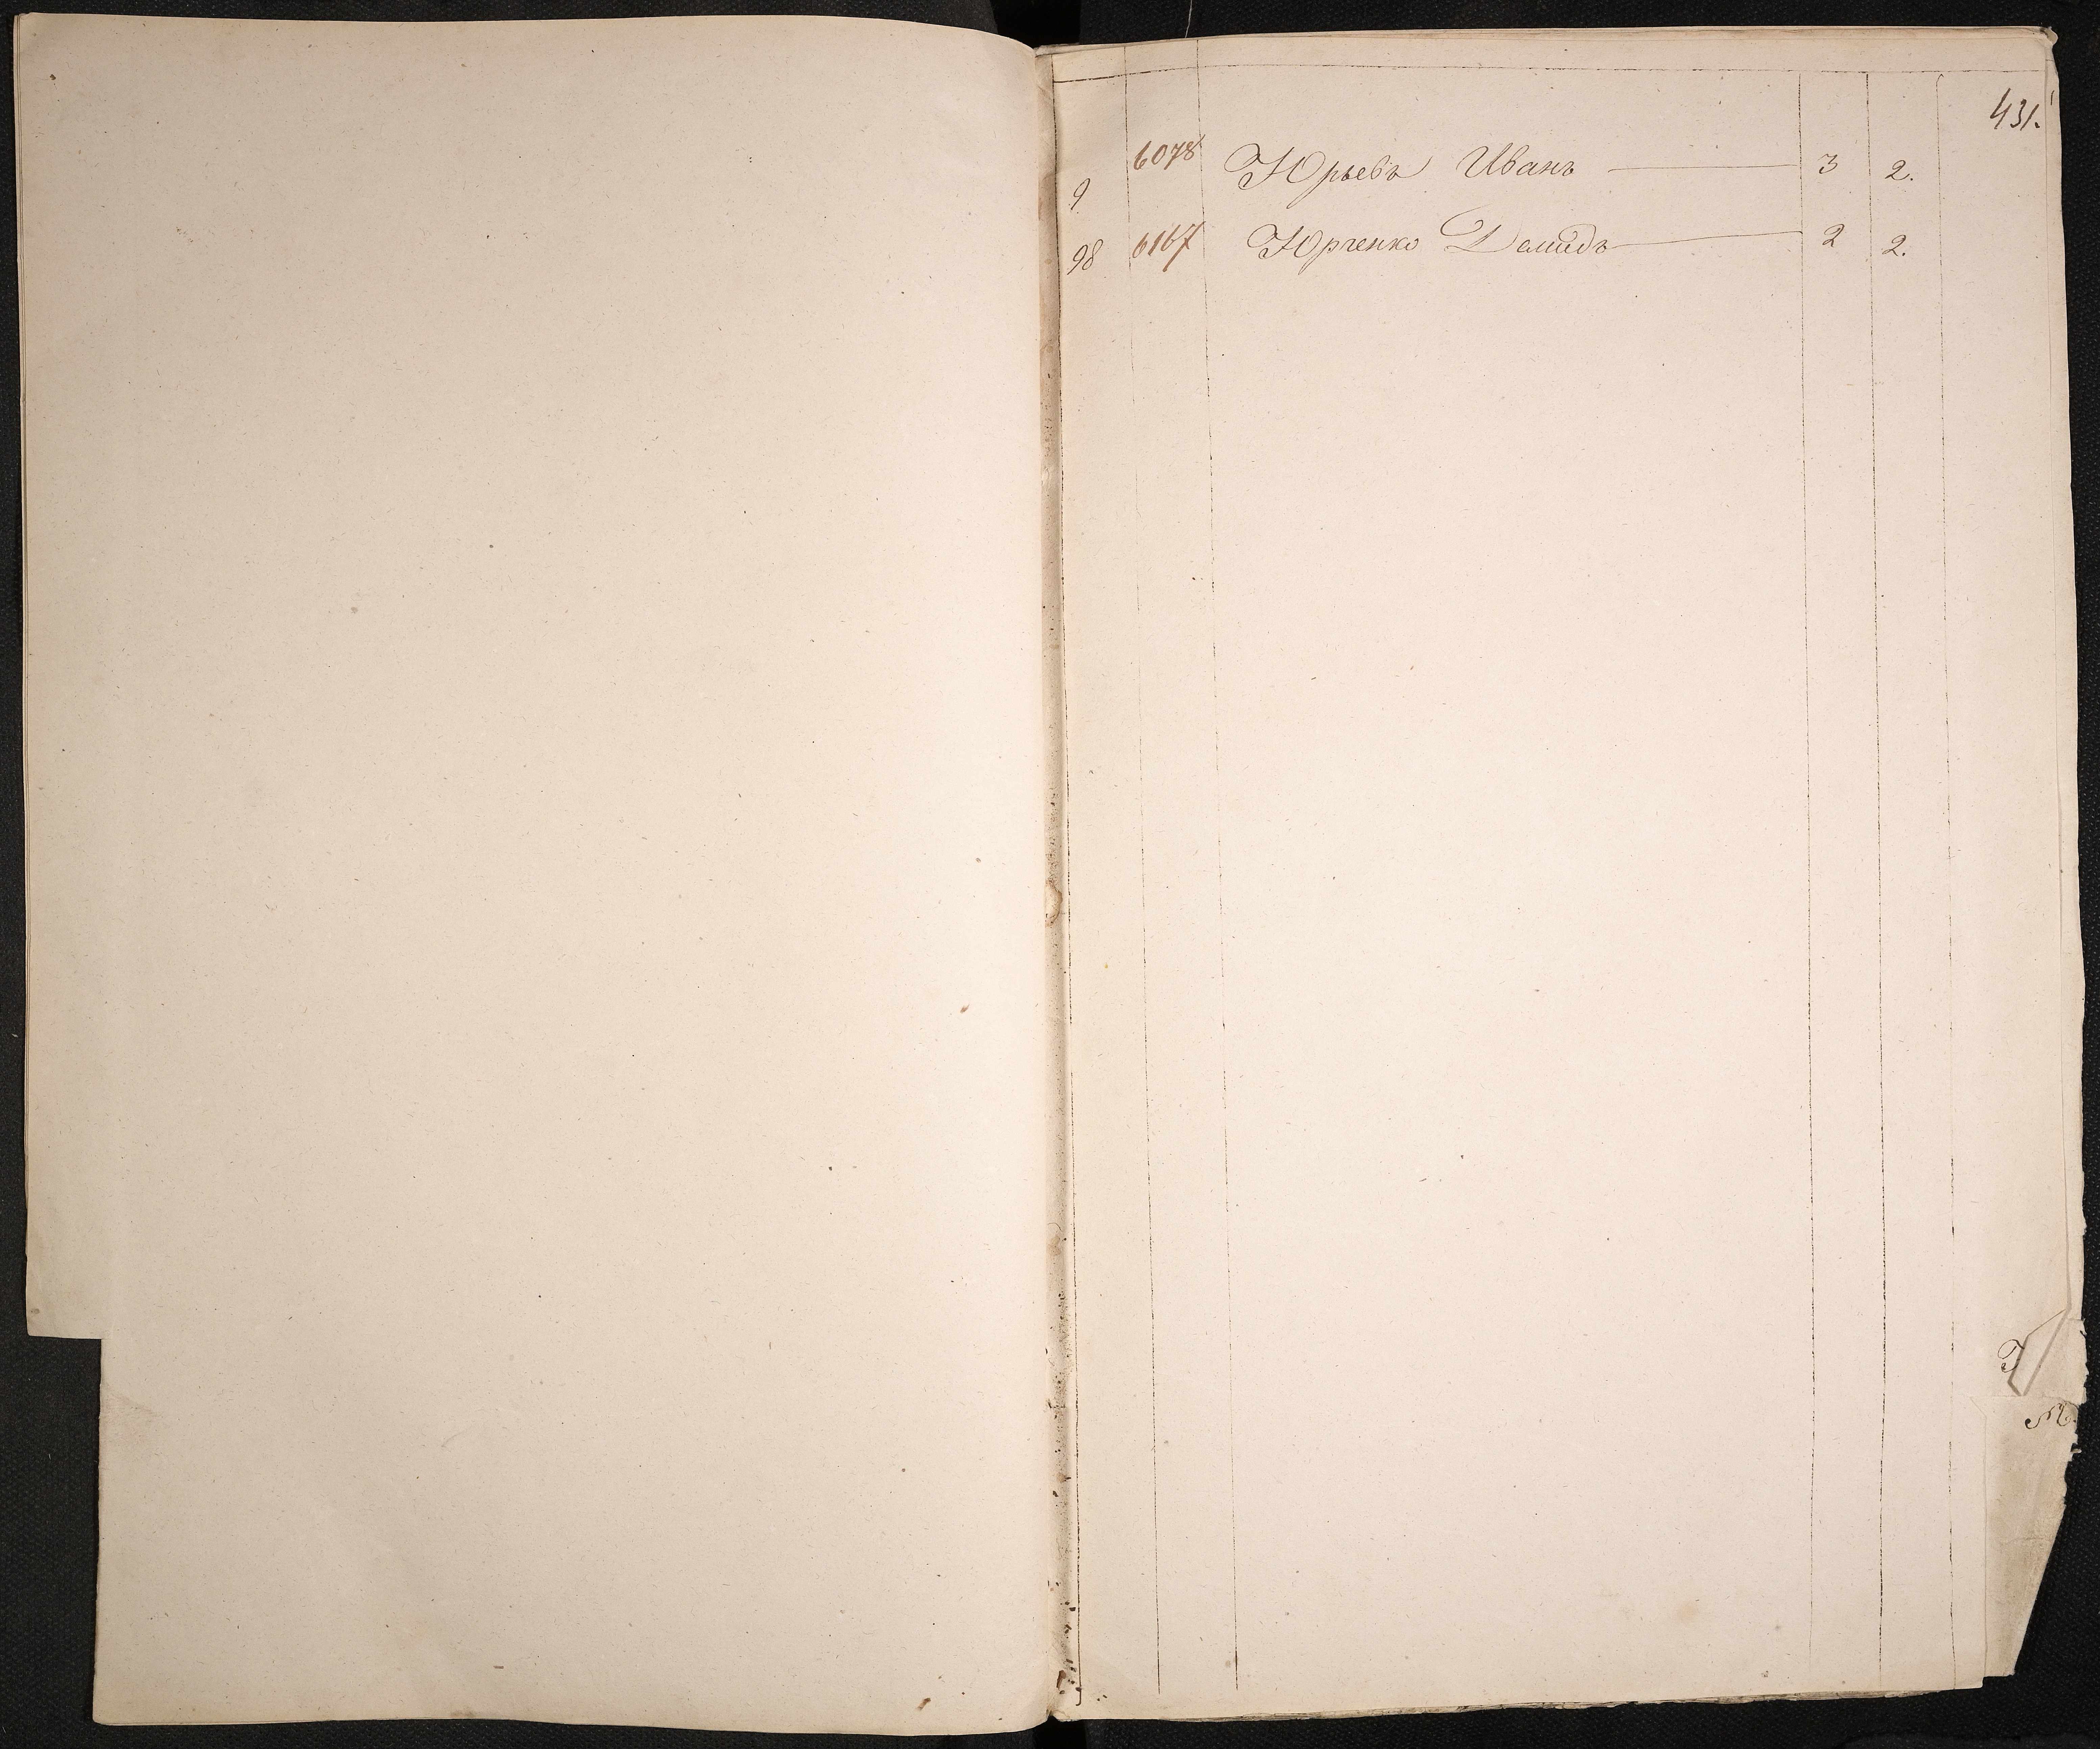 431.
9 6078 Юрьевъ Иванъ 3 2.
98 6167 Юрченко Демидъ 2 2.